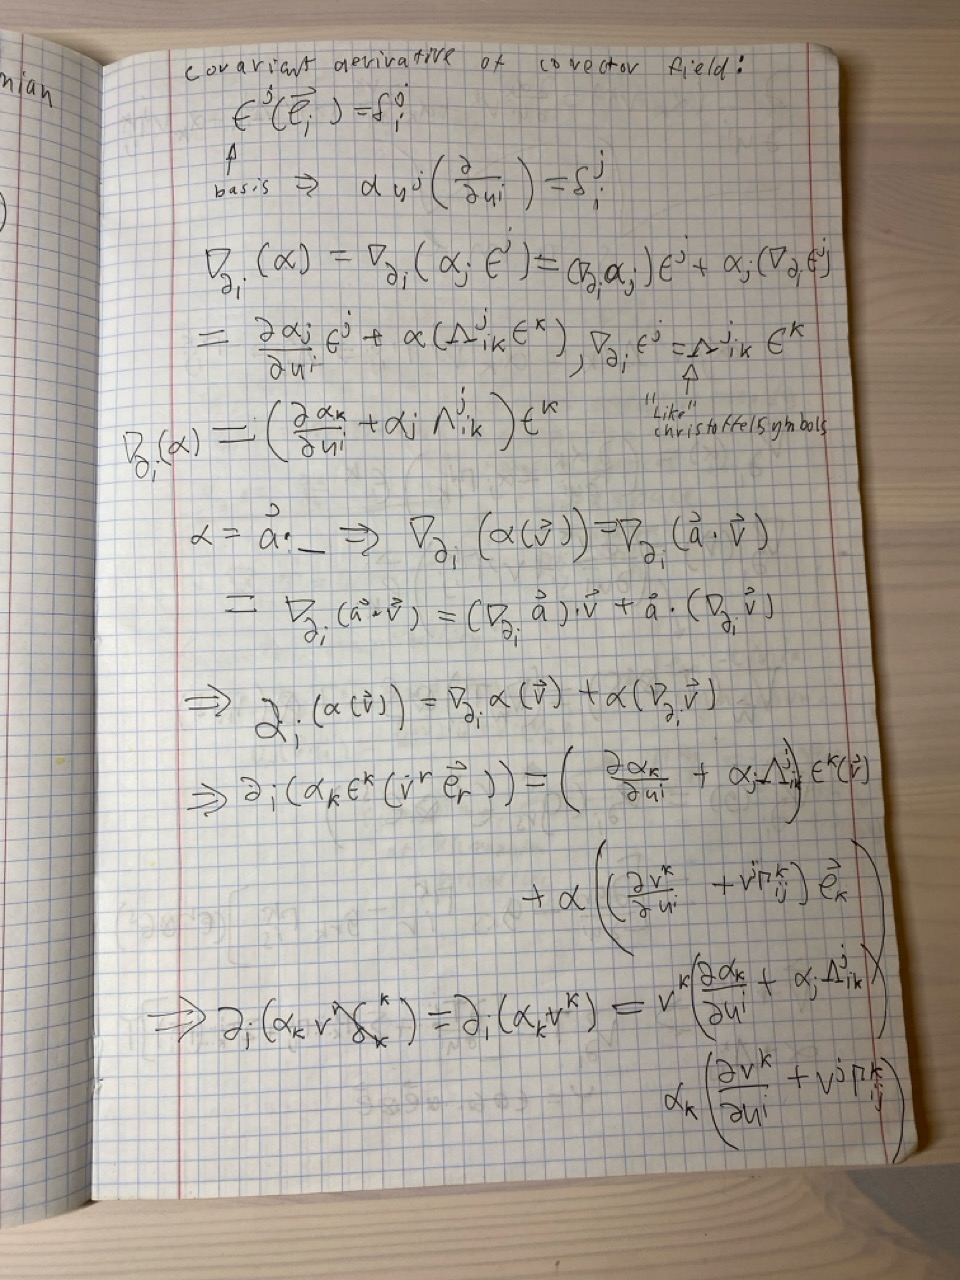 nian
covariant derivative of covector field:
ϵ^j(e⃗_i) = δ_i^j
↑
basis ⇒ d u^j(∂/∂u^i) = δ_i^j
∇_{∂_i}(α) = ∇_{∂_i}(α_j ϵ^j) = (∇_{∂_i} α_j)ϵ^j + α_j(∇_{∂_i} ϵ^j
= ∂α_j/∂u^i ϵ^j + α(Λ^j_{ik} ϵ^k), ∇_{∂_i} ϵ^j = Λ^j_{ik} ϵ^k
↑
"Like"
christoffel symbols
∇_{∂_i}(α) = (∂α_k/∂u^i + α_j Λ^j_{ik})ϵ^k
α = a⃗·_ ⇒ ∇_{∂_i}(α(v⃗)) = ∇_{∂_i}(a⃗·v⃗)
= ∇_{∂_i}(a⃗·v⃗) = (∇_{∂_i} a⃗)·v⃗ + a⃗·(∇_{∂_i} v⃗)
⇒ ∂_i(α(v⃗)) = ∇_{∂_i} α(v⃗) + α(∇_{∂_i} v⃗)
⇒ ∂_i(α_k ϵ^k(v^r e⃗_r)) = (∂α_k/∂u^i + α_j Λ^j_{ik}) ϵ^k(v⃗)
+ α((∂v^k/∂u^i + v^j Γ^k_{ij}) e⃗_k)
⇒ ∂_i(α_k v^r δ^k_k) = ∂_i(α_k v^k) = v^k(∂α_k/∂u^i + α_j Λ^j_{ik})
α_k(∂v^k/∂u^i + v^j Γ^k_{ij})